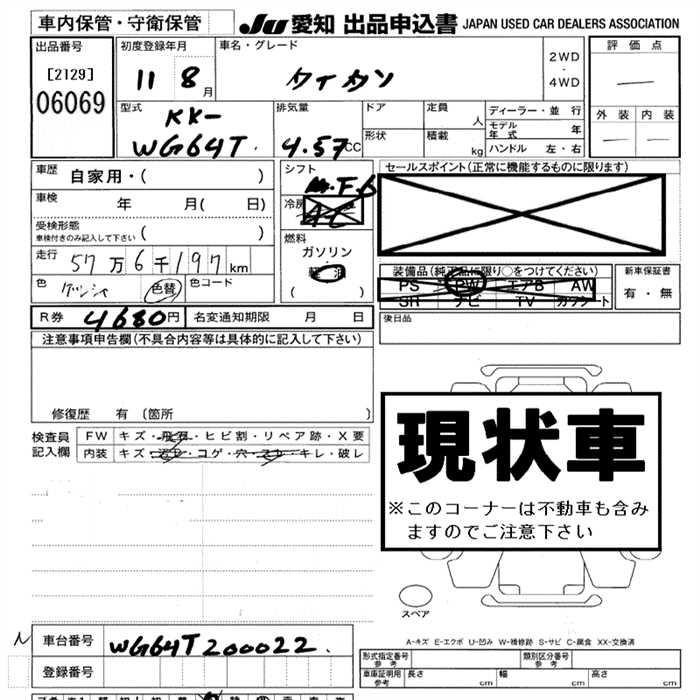 車内保管・守衛保管 JU 愛知 出品申込書 JAPAN USED CAR DEALERS ASSOCIATION
出品番号 初度登録年月 車名・グレード 評価点
[2129] 11 8月 タイタン 2WD・4WD
06069
型式 KK-WG64T. 排気量 4.57CC ドア 定員 人 ディーラー・並行 外装 内装
形状 積載 kg モデル年式 年
ハンドル 左・右
車歴 自家用・( ) シフト セールスポイント(正常に機能するものに限ります)
車検 年 月( 日) 冷房 AC
受検形態
車検付きのみ記入して下さい ( ) 燃料
走行 57万6千197km ガソリン
軽油 装備品(純正品に限り○をつけてください) 新車保証書
色 色替 色コード ( ) PS PW エアB AW 有・無
SR ナビ TV カワシート
R券 4680円 名変通知期限 月 日 後日品
注意事項申告欄(不具合内容等は具体的に記入して下さい)
修復歴 有 (箇所 )
現状車
※このコーナーは不動車も含みますのでご注意下さい
検査員記入欄 FW キズ・飛石・ヒビ割・リペア跡・X要
内装 キズ・コゲ・穴・キレ・破レ
スペア
A-キズ E-エクボ U-凹み W-補修跡 S-サビ C-腐食 XX-交換済
N 車台番号 WG64T200022.
登録番号
形式指定番号 参考 類別区分番号 参考
車庫証明用 参考 長さ cm 幅 cm 高さ cm